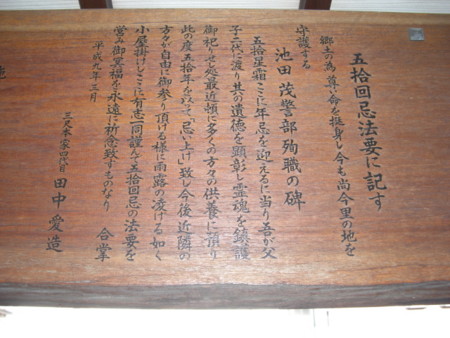 五拾回忌法要に記す
郷土の為尊い命を挺身し今も尚今里の地を
守護する
池田茂警部殉職の碑
五拾星霜ここに年忌を迎えるに当り吾が父
子二代に渡り其の遺徳を顕彰し霊魂を鎮護
御祀りせる処最近頓に多くの方々の供養に頂り
此の度五拾年を以て忌い上げ致し今後近隣の
方々が自由に御参り頂け様に雨露の凌げる如く
小屋掛けここに有志一同謹んで五拾回忌の法要を
営み御冥福を永遠に祈念致すものなり 合掌
平成九年三月
三久本家四代目 田中愛造